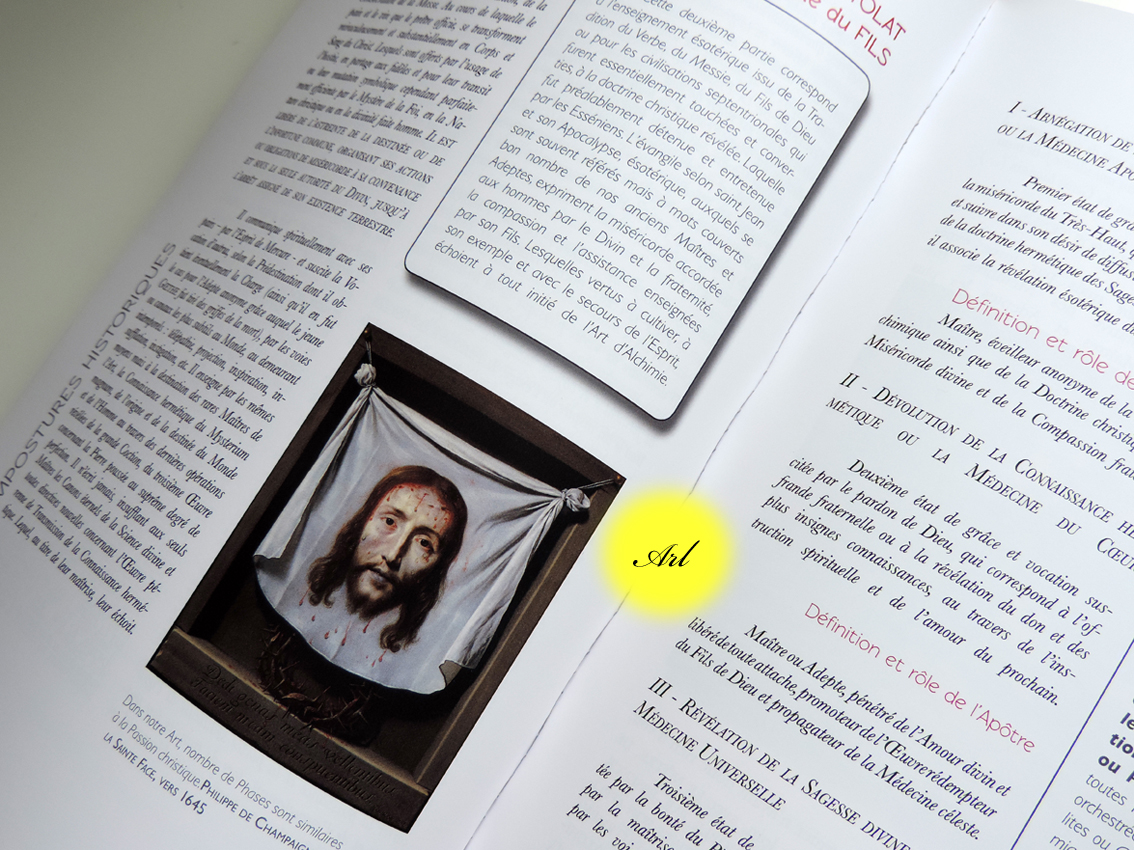 de la
lution de la Messe. Au cours de laquelle le
pain et le vin que le prêtre officie, se transforment
miraculeusement et substantiellement en Corps et
Sang du Christ. Lesquels sont offerts par l'usage de
l'hostie, en partage aux fidèles et pour leur transit
ou leur mutation, symbolique cependant parfaite-
ment effectuée par le Mystère de la Foi, en la Na-
ture christique ou en la divinité faite homme. IL EST
LIBÉRÉ DE L'ASTREINTE DE LA DESTINÉE OU DE
L'INFORTUNE COMMUNE, ORGANISANT SES ACTIONS
OU OBLIGATIONS DE MISÉRICORDE À SA CONVENANCE
ET SOUS LA SEULE AUTORITÉ DU DIVIN, JUSQU'À
L'ARRÊT ASSIGNÉ DE SON EXISTENCE TERRESTRE.
Il communique spirituellement avec ses
pairs - par l'Esprit de Mercure - et suscite la Vo-
cation d'autres, selon la Prédestination dont il ob-
tient temporairement la Charge (ainsi qu'il en fut
le cas pour l'Adepte anonyme grâce auquel le jeune
les plus subtiles au Monde, au demeurant
télépathie, projection, inspiration, in-
Il enseigne par les mêmes
moyens mais à la destination des rares Maîtres de
l'Art, la Connaissance hermétique du Mysterium
magnum, de l'origine et de la destinée du Monde
et de l'Homme au travers des dernières opérations
de la grande Coction, du troisième Œuvre
concernant la Pierre poussée au suprême degré de
perfection. Il n'écrit jamais, insufflant aux seuls
les Canons éternels de la Science divine et
toutes directives nouvelles concernant l'Œuvre
de Transmission de la Connaissance hermé-
tique. Lequel, au titre de leur maîtrise, leur échoit.
MPOSTURES HISTORIQUES
TOLAT
du FILS
Cette deuxième partie correspond
à l'enseignement ésotérique issu de la Tra-
dition du Verbe, du Messie, du Fils de Dieu
ou pour les civilisations septentrionales qui
furent essentiellement touchées et conver-
ties, à la doctrine christique révélée. Laquelle
fut préalablement détenue et entretenue
par les Esséniens. L'évangile selon saint Jean
et son Apocalypse, ésotérique, auxquels se
sont souvent référés mais à mots couverts
bon nombre de nos anciens Maîtres et
Adeptes, expriment la miséricorde accordée
aux hommes par le Divin et la fraternité,
la compassion et l'assistance enseignées
par son Fils. Lesquelles vertus à cultiver, à
son exemple et avec le secours de l'Esprit,
échoient à tout initié de l'Art d'Alchimie.
Dans notre Art, nombre de Phases sont similaires
à la Passion christique. PHILIPPE DE CHAMPAIGN
LA SAINTE FACE, VERS 1645
Art
I - ABNÉGATION DE
OU LA MÉDECINE APO
Premier état de gra
la miséricorde du Très-Haut, q
et suivre dans son désir de diffus
de la doctrine hermétique des Sage
il associe la révélation ésotérique d
Définition et rôle de
Maître, éveilleur anonyme de la
chimique ainsi que de la Doctrine christiq
Miséricorde divine et de la Compassion frat
II - DÉVOLUTION DE LA CONNAISSANCE HE
MÉTIQUE OU LA MÉDECINE DU CŒU
Deuxième état de grâce et vocation sus-
citée par le pardon de Dieu, qui correspond à l'of-
frande fraternelle ou à la révélation du don et des
plus insignes connaissances, au travers de l'ins-
truction spirituelle et de l'amour du prochain.
Définition et rôle de l'Apôtre
Maître ou Adepte, pénétré de l'Amour divin et
libéré de toute attache, promoteur de l'Œuvre rédempteur
du Fils de Dieu et propagateur de la Médecine céleste.
III - RÉVÉLATION DE LA SAGESSE DIVINE
MÉDECINE UNIVERSELLE
Troisième état de
tée par la bonté du P
par la maîtris
par les voi
le
tio
ou p
toutes
orchestré
lites ou C
mi